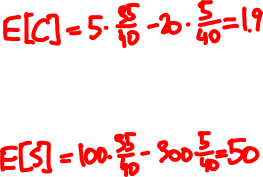 E[C] = 5 · 35/40 - 20 · 5/40 = 1.9
E[S] = 100 · 35/40 - 300 · 5/40 = 50